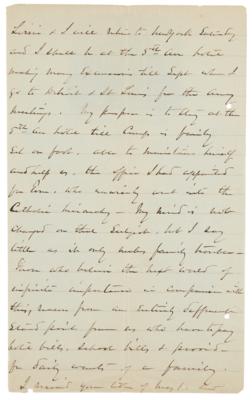 Lizzie & I will return to New York Saturday
and I shall be at the 5th Av hotel
making many Excursions till Sept when I
go to Detroit & St Louis for the Army
Meetings. My purpose is to stay at the
5th Av hotel till Cump is fairly
Set on foot. able to maintain himself
and help us. the office I had appointed
for him. who
Catholic
My mind is not
changed on that Subject. but I say
little as it only makes family trouble
Those who believe the next world of
infinite importance in comparison with
this, reason from an Entirely different
Stand point from us who have to pay
hotel bills, school bills & provide
for daily wants of a family.
I received your letter of